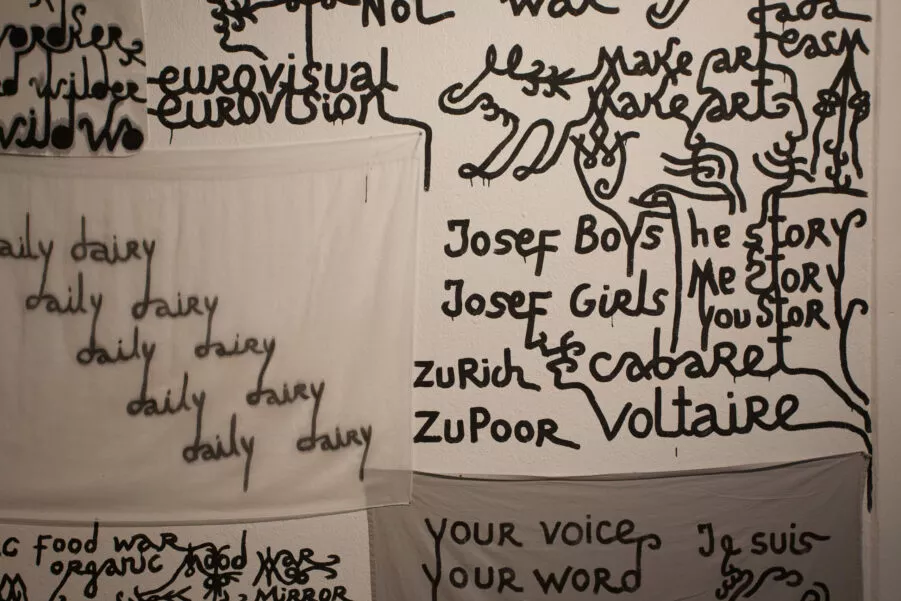 Not
eurovisual
eurovision
wilder
Make art
Make art
daily dairy
daily dairy
daily dairy
daily dairy
daily dairy
Josef Boys
Josef Girls
he story
Me Story
you Story
zuRich
zuPooR
cabaret
Voltaire
food war
organic
MiRROR
YOUR voice
YOUR WORD
suis